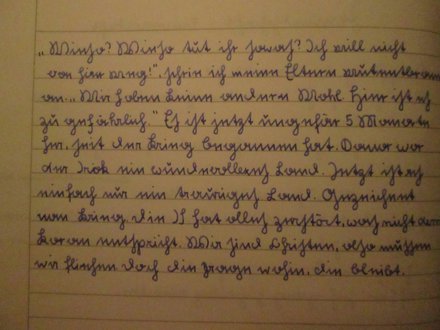 „Wieso? Wieso tut ihr sowas? Ich will nicht
von hier weg!", schrie ich meine Eltern wutentbrannt
an. „Wir haben keine andere Wahl. Hier ist es
zu gefährlich." Es ist jetzt ungefähr 5 Monate
her, seit der Krieg begonnen hat. Davor war
der Irak ein wundervolles Land. Jetzt ist es
einfach nur ein trauriges Land. Gezeichnet
von Krieg, die IS hat alles zerstört, was nicht dem
Koran entspricht. Wir sind Christen, also müssen
wir fliehen doch die Frage wohin, die bleibt.